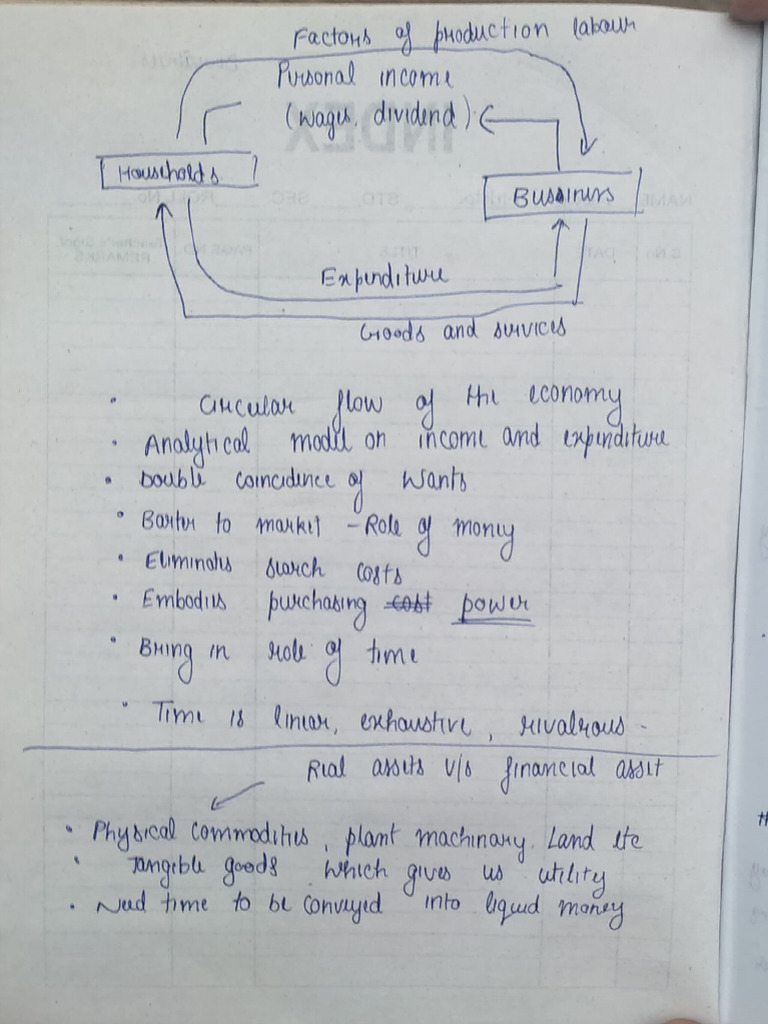 Factors of production labour
Personal income
(wages, dividend)
Households
Bussiness
Expenditure
Goods and services
• Circular flow of the economy
• Analytical model on income and expenditure
• Double coincidence of wants
• Barter to market - Role of money
• Eliminates search costs
• Embodies purchasing cost power
• Bring in role of time
• Time is linear, exhaustive, rivalrous -
Real assets v/s financial asset
• Physical commodities, plant machinary, Land etc
• Tangible goods which gives us utility
• Need time to be conveyed into liquid money
INDEX
NAME STD. SEC ROLL NO.
S.No DATE TITLE PAGE NO. REMARKS